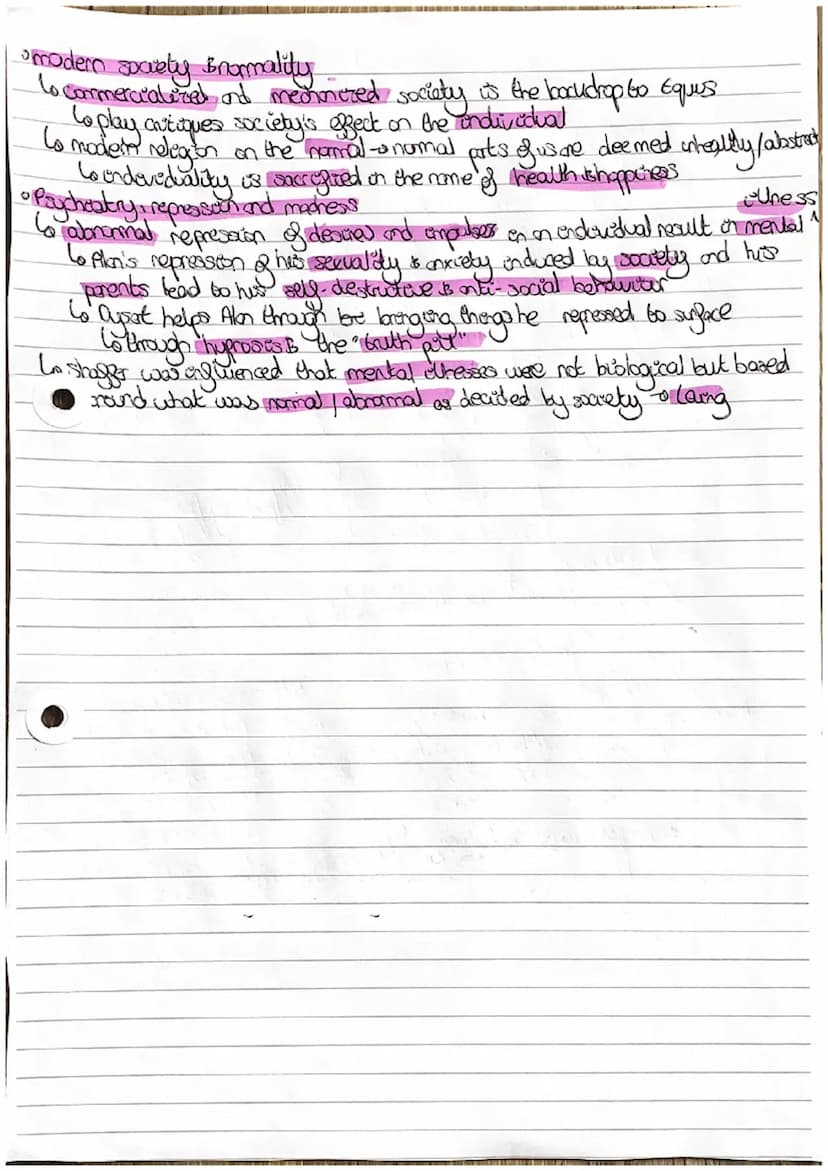 modern society & normality
↳ commercialized and mechanized society is the backdrop to Equus
↳ play critiques society's effect on the individual
↳ modern religion on the normal → normal parts of us are deemed unhealthy/abstract
↳ individuality is sacrificed in the name of health & happiness
Psychiatry, repression and madness
illness
↳ abnormal repression of desires and impulses in an individual result in mental ^
↳ Alan's repression of his sexuality & anxiety induced by society and his
parents lead to his self-destructive & anti-social behaviour
↳ Dysart helps Alan through bringing things he repressed to surface
↳ through hypnosis & the "truth pill"
↳ Shaffer was influenced that mental illnesses were not biological but based
round what was normal/abnormal as decided by society → Laing